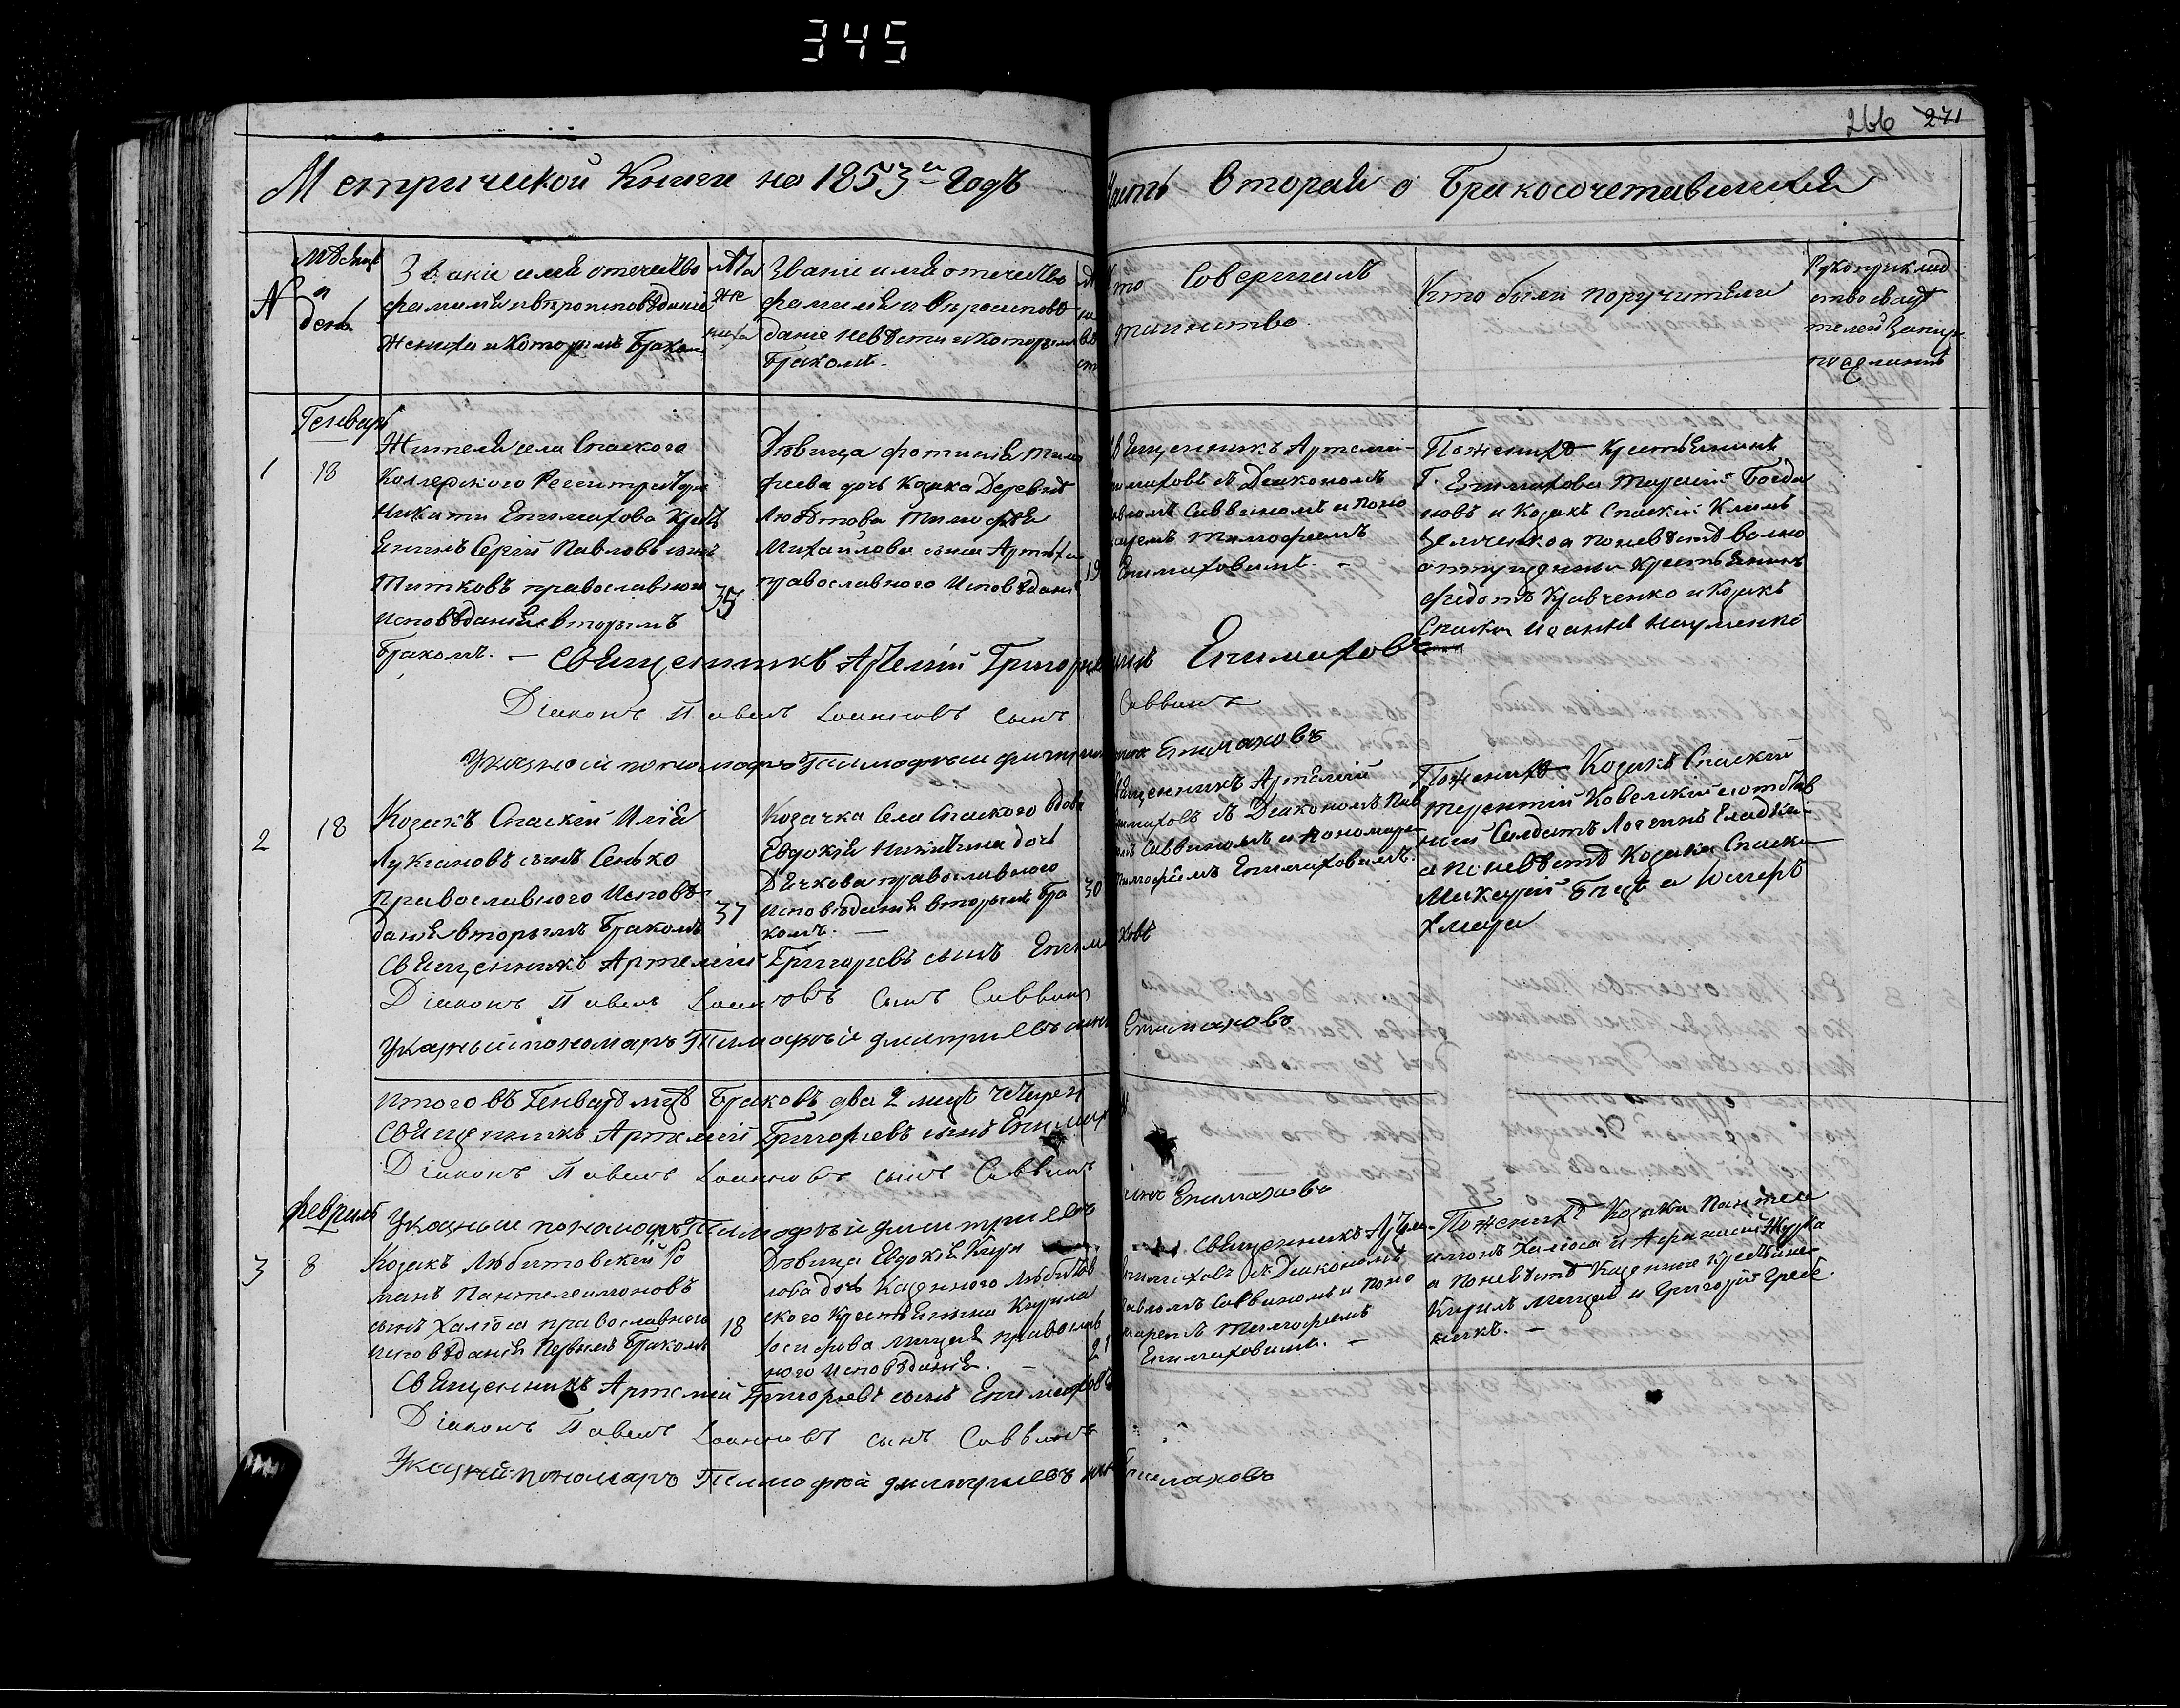 345
266 271
Метрической Книги на 1853й Годъ
Часть вторая о Бракосочетавшихся
N
Мѣсяцъ
и
день
Званіе имя отечество
фамилія и вѣроисповѣданіе
Жениха и Которымъ Бракомъ
лѣта
же
ниха
Званіе имя отечество
фамилія и вѣроисповѣ
даніе невѣсти и которымъ
Бракомъ.
Кто Совершилъ
таинство
Кто были поручители
Рукоприклад
ство свидѣ
телей
по желанію
Генварь
1 18
Жителя села Спаского
Никити Епимахова Крест
янинъ Сергій Павловъ сынъ
Титковъ православного
исповѣданія вторымъ
Бракомъ. –
35
Дѣвица фотинія Тимо
феева дочь Козака Деревнѣ
Любитова Тимофея
Михайлова сына
православного Исповѣданія
19
Священникъ Артемій
Епимаховъ съ Діакономъ
Павломъ Саввиномъ и Поно
маремъ Тимофѣемъ
Епимаховимъ. –
По женихѣ Крестьянинъ
Г. Епимахова Богда
новъ и Козакъ Спаскій Климъ
а по невѣстѣ волно
отпущенный Крестьянинъ
федотъ Кравченко и Козакъ
Спаскій Іоаннъ Науменко
Священникъ Артемій Григорьевъ сынъ Епимаховъ
Діаконъ Павелъ Іоанновъ сынъ Саввинъ
Указной пономарь Тимофѣй Дмитріевъ сынъ Епимаховъ
2 18
Козакъ Спаскій Илія
Лукіановъ сынъ Сенько
Православного Исповѣ
данія вторымъ Бракомъ
37
Козачка села Спаского вдова
Евдокія Никитина дочь
Дячкова православного
Исповѣданія вторымъ Бра
комъ. –
30
Священникъ Артемій
Епимаховъ съ Діакономъ Пав
ломъ Саввиномъ и Пономаремъ
Тимофѣемъ Епимаховимъ.
По женихѣ Козакъ Спаскій
Терентій Ковелскій и отстав
ний Салдатъ
а по невѣстѣ Козаки Спаски
Хмара
Священникъ Артемій Григорьевъ сынъ Епимаховъ
Діаконъ Павелъ Іоанновъ сынъ Саввинъ
Указный пономарь Тимофѣй Дмитріевъ сынъ Епимаховъ
Итого въ Генварѣ мцѣ Браковъ два 2 лицъ четыре 4
Священникъ Артемій Григорьевъ сынъ Епимаховъ
Діаконъ Павелъ Іоанновъ сынъ Саввинъ
Указный пономарь Тимофѣй Дмитріевъ сынъ Епимаховъ
февраль
3 8
Козакъ Любитовскій Ро
манъ Пантелеимоновъ
сынъ Халоса православного
исповѣданія Первымъ Бракомъ
18
Дѣвица Евдокія Кири
лова дочь Казенного Любитов
ского Крестьянина Кирила
Іосифова Мицая православ
ного Исповѣданія. –
21
Священникъ Артемій
Епимаховъ съ Діакономъ
Павломъ Саввиномъ и Поно
маремъ Тимофѣемъ
Епимаховимъ. –
По женихѣ Козаки Пантеле
имонъ Халоса и Афанасій
а по невѣстѣ Казенние Крестьяне
Кирилъ Мицай и Григорій Гребе
никъ. –
Священникъ Артемій Григорьевъ сынъ Епимаховъ
Діаконъ Павелъ Іоанновъ сынъ Саввинъ
Указный пономарь Тимофѣй Дмитріевъ сынъ Епимаховъ